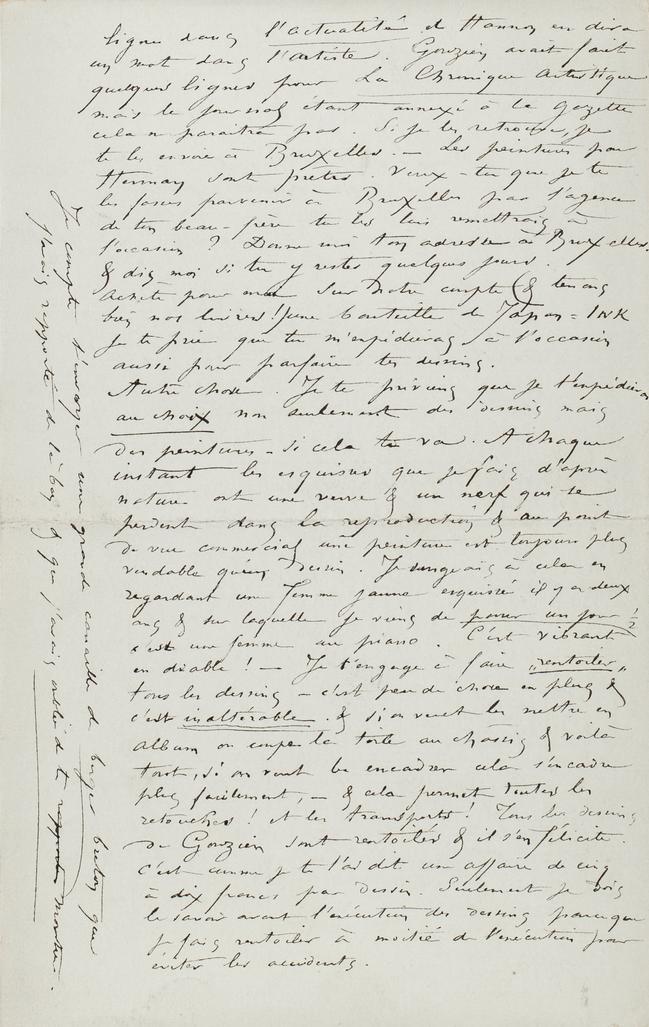 lignes dans l'actualité & Hannon en dira
un mot dans l'artiste. Gouzien avait fait
quelques lignes pour La Chronique Artistique
mais le journal étant annexé à la gazette
cela ne paraîtra pas. Si je les retrouve, je
te les envoie à Bruxelles. — Les peintures pour
Herman sont prêtes. Veux-tu que je te
les fasse parvenir à Bruxelles par l'agence
de ton beau-frère tu les lui remettrais à
l'occasion ? Donne moi ton adresse à Bruxelles.
& dis moi si tu y restes quelques jours.
achète pour moi sur notre compte (& tenons
bien nos livres!) une bouteille de Japan-INK
Je te prie que tu m'expédieras à l'occasion
aussi pour parfaire tes dessins.
Autre chose. Je te préviens que je t'expédierai
au choix non seulement des dessins mais
des peintures - si cela te va. A chaque
instant les esquisses que je fais d'après
nature ont une verve & un nerf qui se
perdent dans la reproduction & au point
de vue commercial une peinture est toujours plus
vendable qu'un dessin. Je songeais à cela en
regardant une femme jaune esquissée il y a deux
ans & sur laquelle je viens de passer un jour 1/2
c'est une femme au piano. C'est vibrant
en diable! — Je t'engage à faire „rentoiler„
tous les dessins - c'est peu de chose en plus &
c'est inaltérable. & si on veut les mettre en
album on coupe la toile au chassis & voilà
tout, si on veut les encadrer cela s'encadre
plus facilement, — & cela permet toutes les
retouches! et les transports! Tous les dessins
de Gouzien sont rentoilés & il s'en félicite.
c'est comme je te l'ai dit une affaire de cinq
à dix francs par dessin. Seulement je dois
le savoir avant l'exécution des dessins parceque
je fais rentoiler à moitié de l'exécution pour
éviter les accidents.
Je compte t'envoyer une grande canaille de berger breton que
j'avais rapporté de là bas & que j'avais oublié de te montrer.